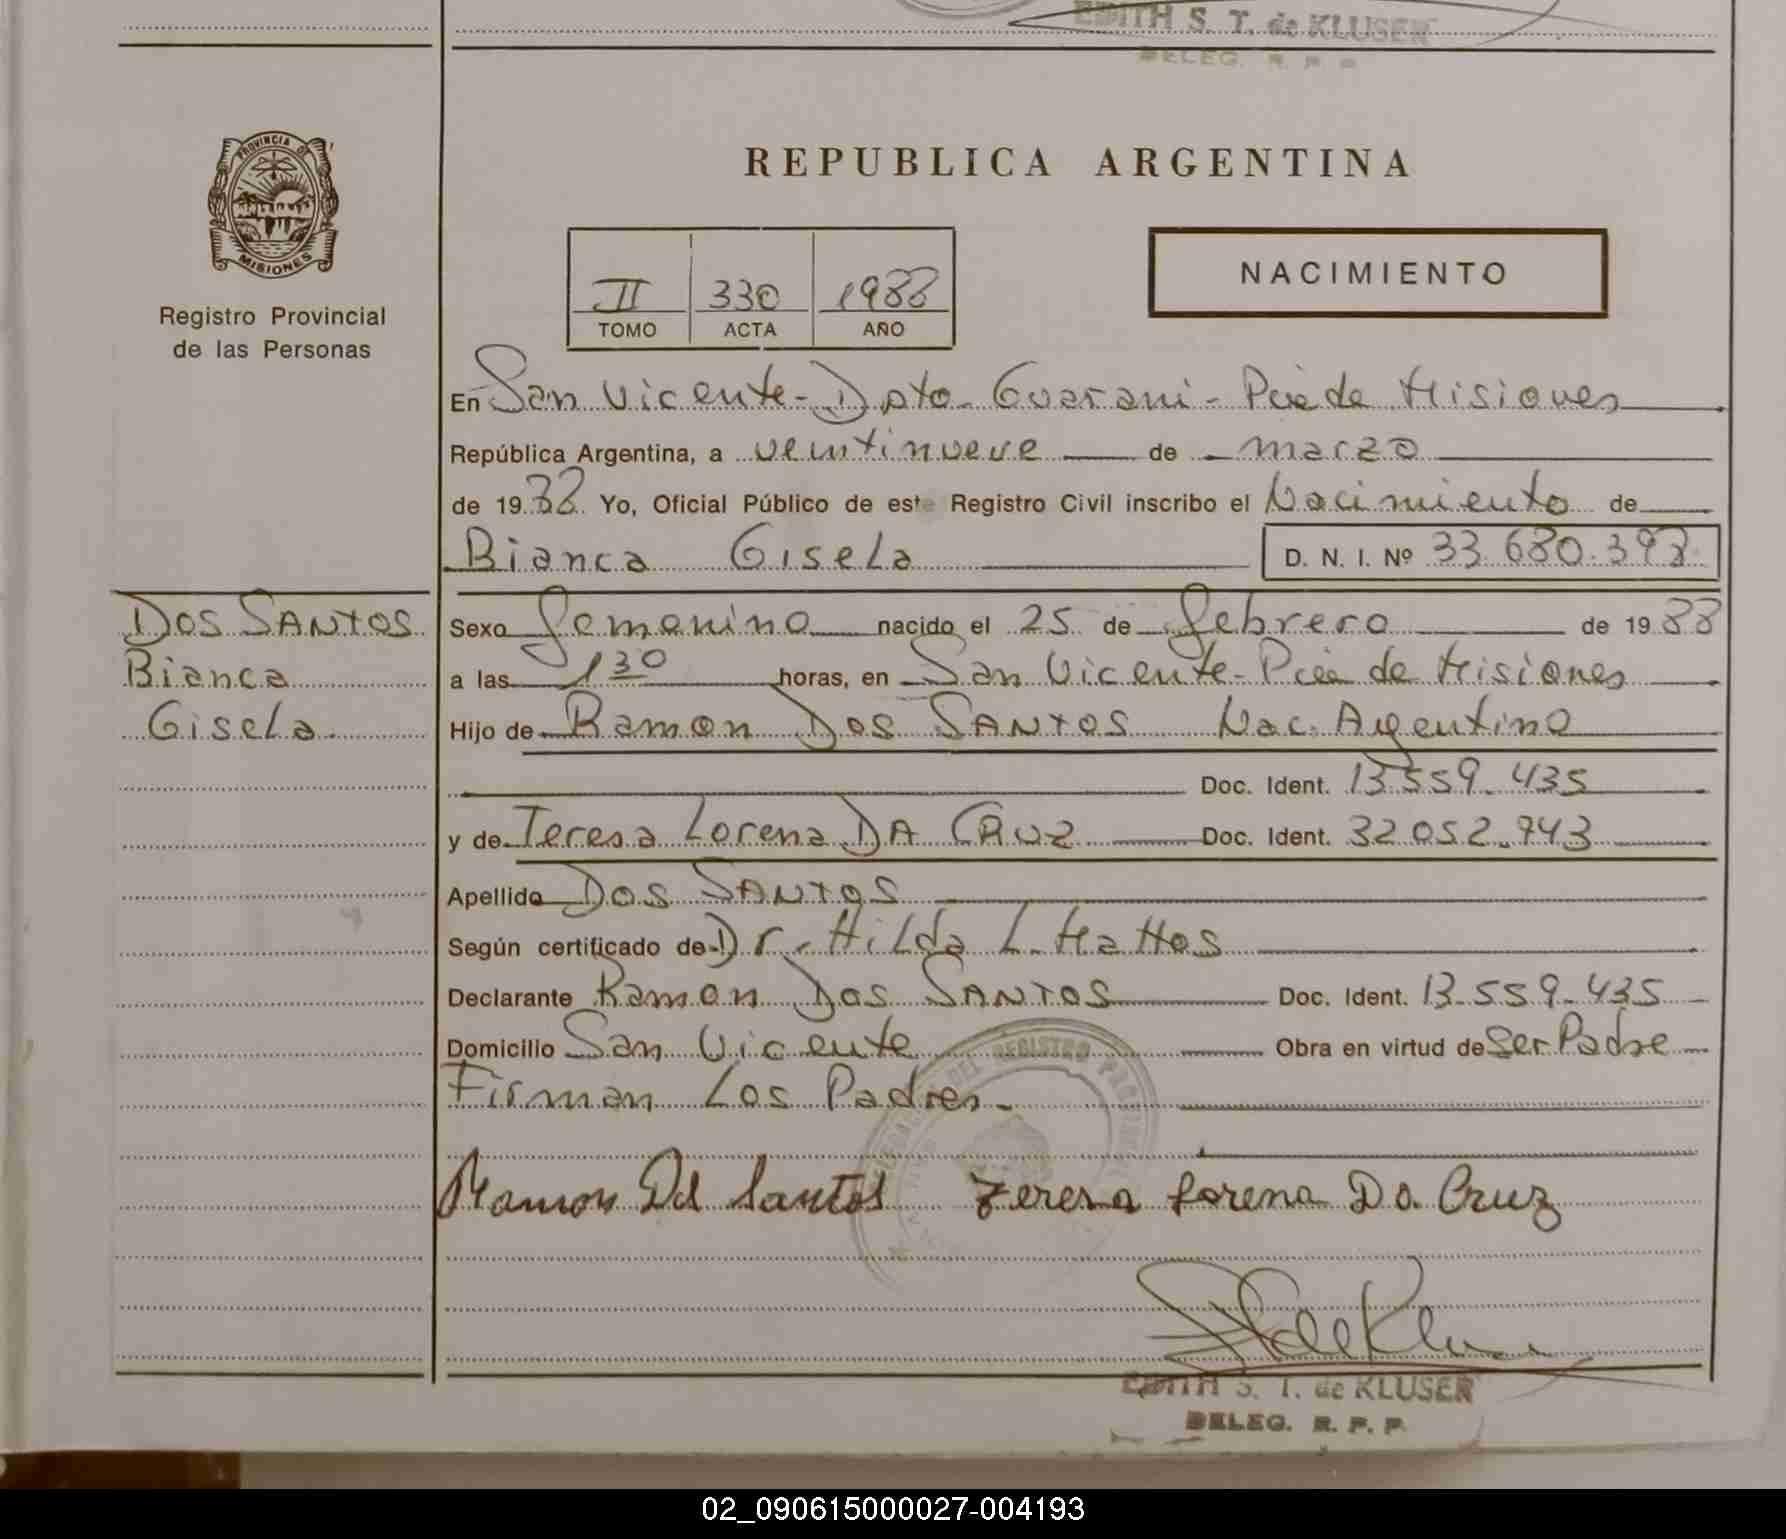 EDITH S. T. de KLUSER
DELEG. R. P. P.
PROVINCIA DE
MISIONES
Registro Provincial
de las Personas
REPUBLICA ARGENTINA
II 330 1988
TOMO ACTA AÑO
NACIMIENTO
En San Vicente - Dpto. Guarani - Pcia de Misiones
República Argentina, a veintinueve de marzo
de 1988 Yo, Oficial Público de este Registro Civil inscribo el Nacimiento de
Bianca Gisela D. N. I. Nº 33.680.393
DOS SANTOS
Bianca
Gisela.
Sexo Femenino nacido el 25 de febrero de 1988
a las 1 30 horas, en San Vicente - Pcia de Misiones
Hijo de Ramon DOS SANTOS Nac. Argentino
Doc. Ident. 13.559.435
y de Teresa Lorena DA CRUZ Doc. Ident. 32.052.943
Apellido DOS SANTOS
Según certificado de Dr. Hilda L. Mattos
Declarante Ramon Dos SANTOS Doc. Ident. 13.559.435
Domicilio San Vicente Obra en virtud de Ser Padre
Firman Los Padres.
DEL REGISTRO
Ramon Dos Santos Teresa Lorena Da Cruz
EDITH S. T. de KLUSER
DELEG. R. P. P.
02_090615000027-004193